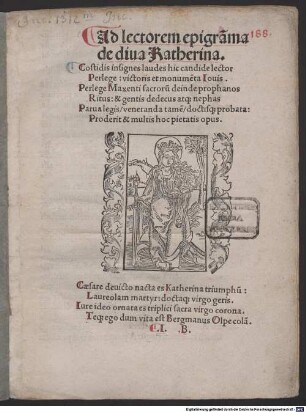 166.
Ad lectorem epigrãma
de diua Katherina.
Costidis insignes laudes hic candide lector
Perlege: victoris et monumẽta Iouis.
Perlege Maxenti sacrorũ deinde prophanos
Ritus: & gentis dedecus atq; nephas
Parua legis/veneranda tamẽ/doctisq; probata:
Proderit & multis hoc pietatis opus.
Cæsare deuicto nacta es Katherina triumphũ:
Laureolam martyr: doctaq; virgo geris.
Iure ideo ornata es triplici sacra virgo corona.
Teq; ego dum vita est Bergmanus Olpe colã.
C.I. .B.